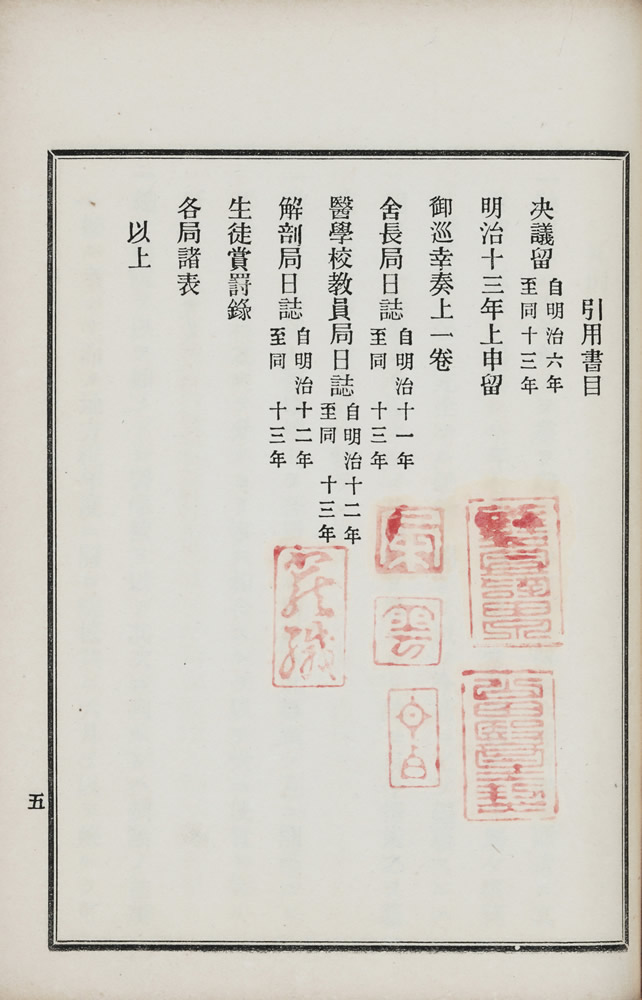 引用書目
决議留 自明治六年 至同十三年
明治十三年上申留
御巡幸奏上一卷
舍長局日誌 自明治十一年 至同 十三年
醫學校教員局日誌 自明治十二年 至同 十三年
解剖局日誌 自明治十二年 至同 十三年
生徒賞罸錄
各局諸表
以上
五